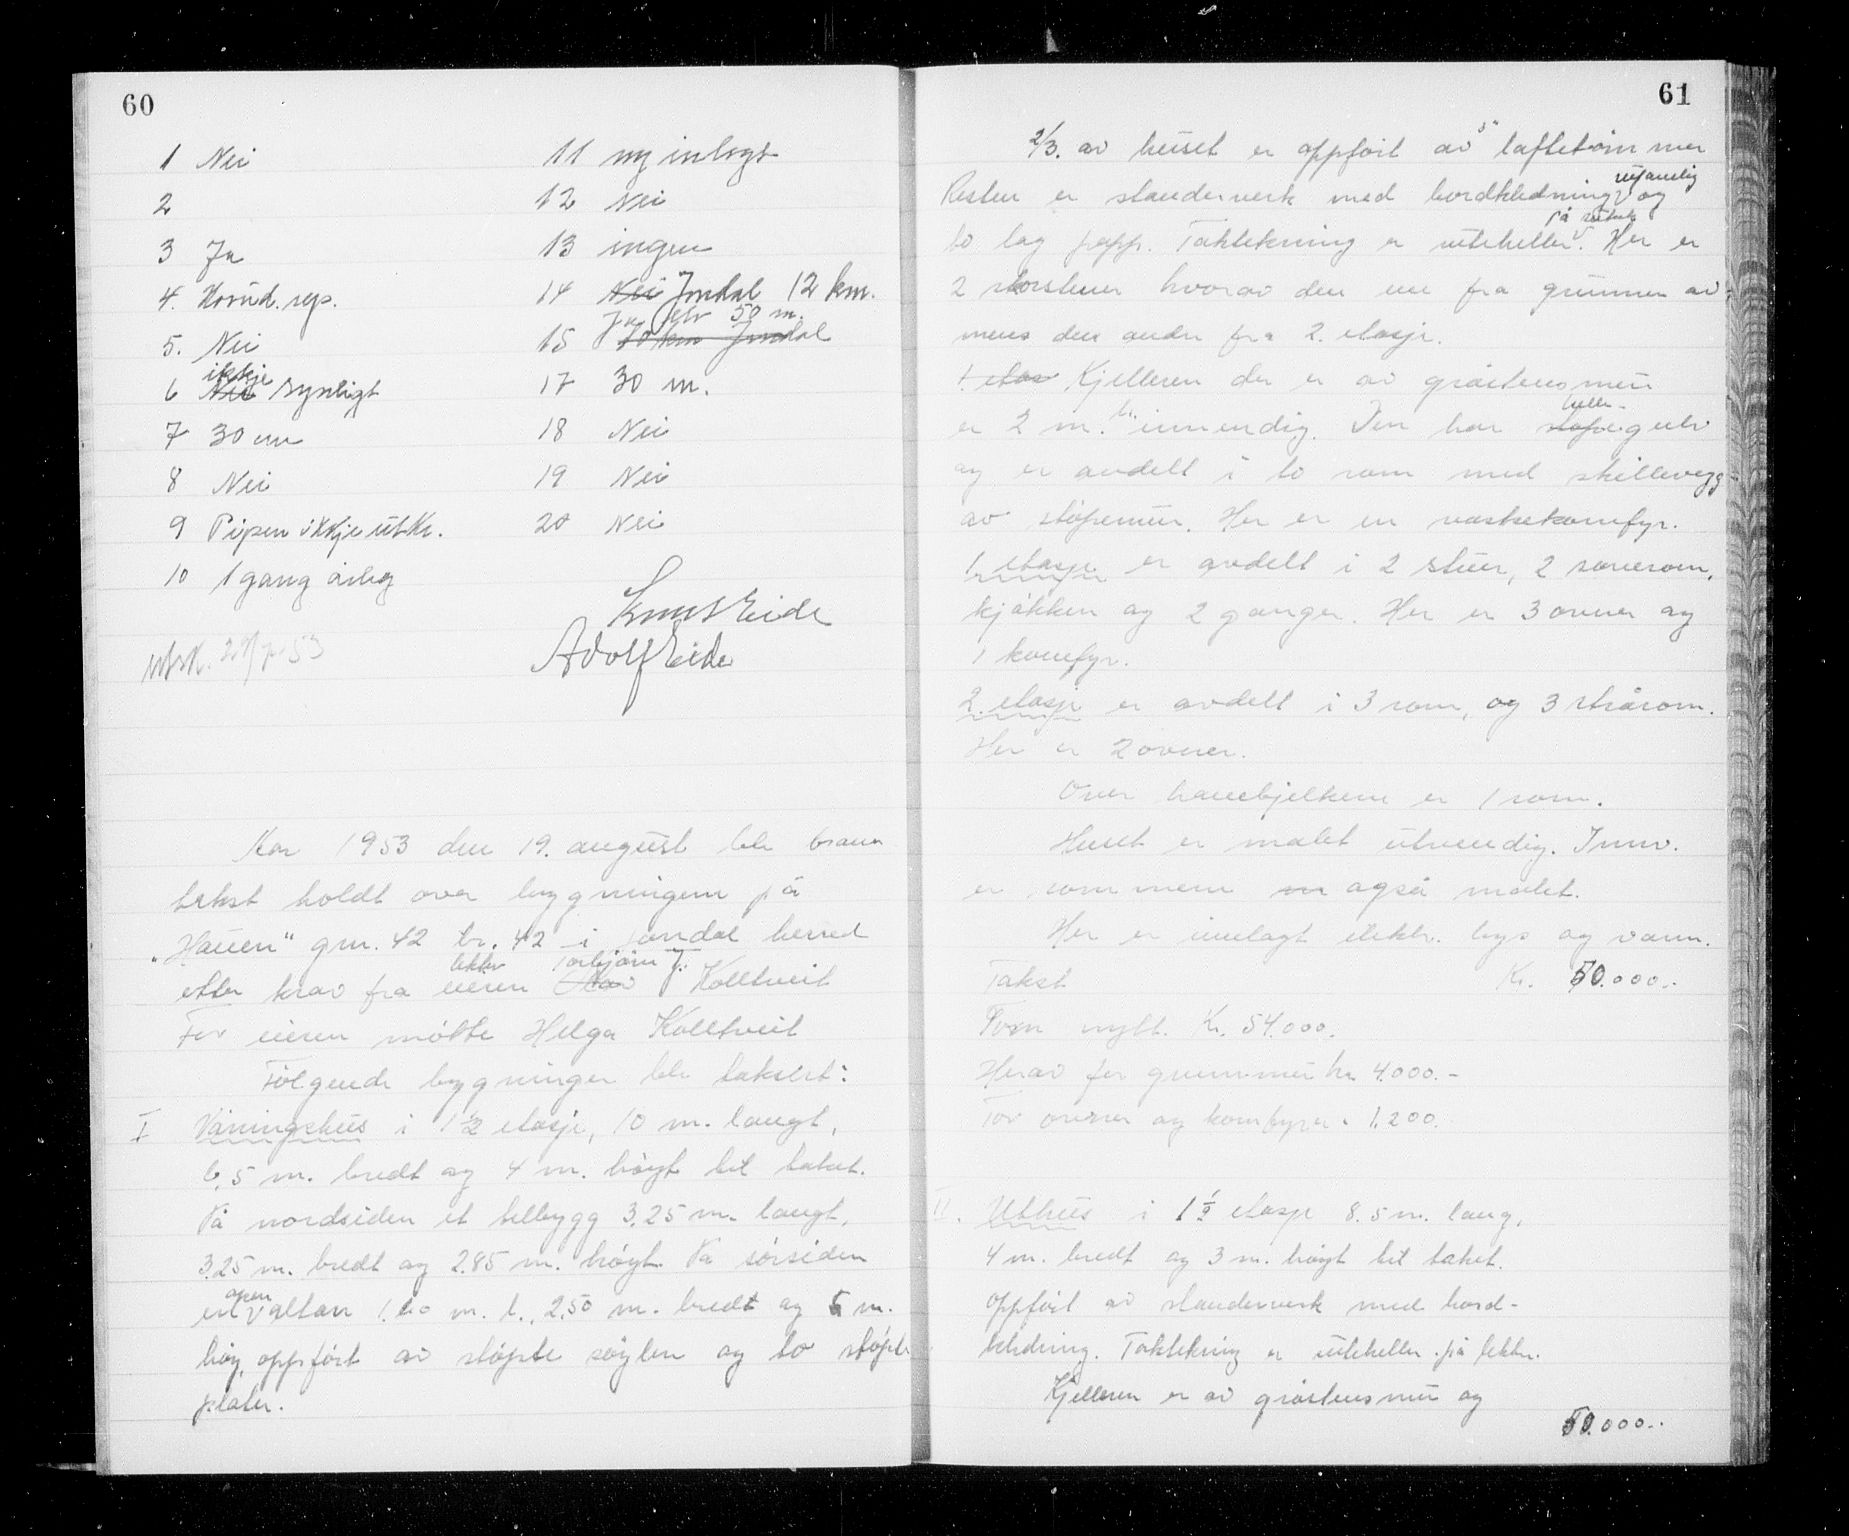 60
1 Nei
2
3 Ja
4. Komd. sep.
5. Nei
ikkje
6 Nei synligt
7 30 cm
8 Nei
9 Pipen ikkje utkr.
10 1 gang årleg
11 ny inlagt
12 Nei
13 ingen
14 Nei Jondal 12 km.
Ja, elv 50 m.
15 10 km Jondal
17 30 m.
18 Nei
19 Nei
20 Nei
Knut Eide
Adolf Eide
utsk. 53
Aar 1953 den 19. august ble brann
takst holdt over bygningene på
"Hauen" gnr. 42 br. 42 i Jondal herred
Torbjørn
etter krav fra eieren Olav Kolltveit
For eieren møtte Helga Kolltveit
Følgende bygninger ble taksert:
I Våningshus i 1 1/2 etasje, 10 m. langt,
6,5 m. bredt og 4 m. høyt til taket.
På nordsiden et tilbygg 3.25 m. langt,
3.25 m. bredt og 2.85 m. høyt. På sørsiden
open
en altan 1.60 m. l., 2,50 m. bredt og 5 m.
høy, oppført av støpte søyler og to støpte
plater.
61
2/3. av huset er oppført av 5" laftetømmer
utvendig
Resten er standerverk med bordkledning og
på
to lag papp. Taktekning er uteheller. Her er
2 skorstener hvorav den ene fra grunnen av,
mens den andre fra 2. etasje.
1. etas Kjelleren der er av gråstensmur
h. helle-
er 2 m. innvendig. Den har støpegulv
og er avdelt i to rom med skillevegg
av støpemur. Her er en vaskekomfyr.
1 etasje er avdelt i 2 stuer, 2 soverom,
kjøkken og 2 ganger. Her er 3 ovner og
1 komfyr.
2. etasje er avdelt i 3 rom, og 3 skrårom.
Her er 2 ovner.
Over hanebjelkene er 1 rom.
Huset er malet utvendig. Innv.
er rommene også malet.
Her er innlagt elektr. lys og vann.
Takst Kr. 50.000.-
Som nytt. Kr. 54.000.
Herav for grunnmur kr 4.000.-
For ovner og komfyrer " 1.200.
II. Uthus i 1 1/2 etasje 8.5 m. lang,
4 m. bredt og 3 m. høyt til taket.
Oppført av standerverk med bord-
kledning. Taktekning er uteheller på lekter.
Kjelleren er av gråstensmur og
50.000.-